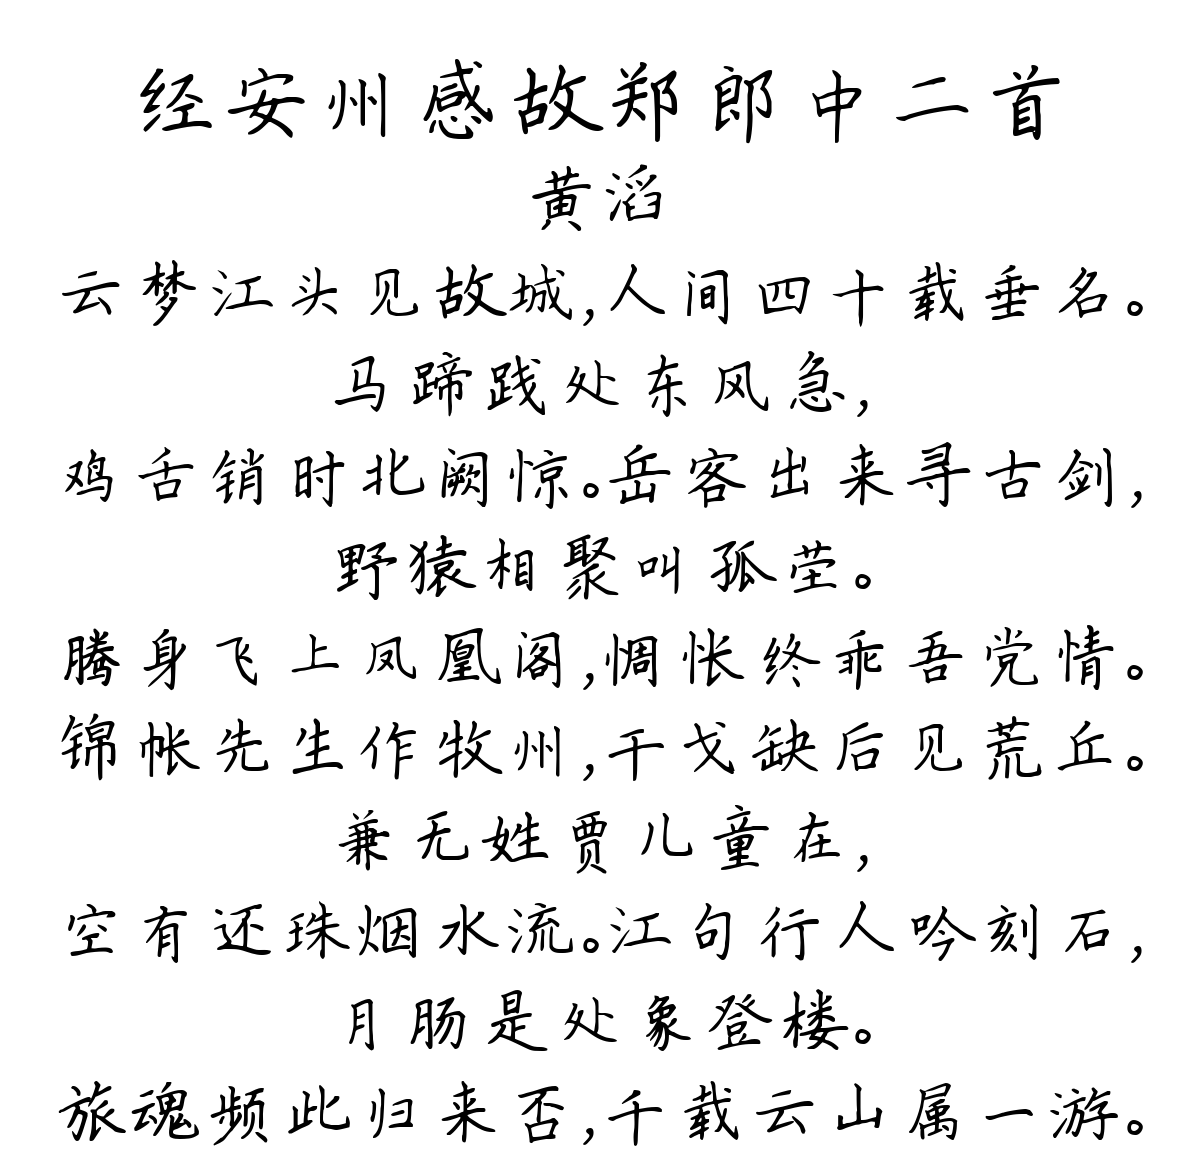 经安州感故郑郎中二首
黄滔
云梦江头见故城,人间四十载垂名。
马蹄践处东风急,
鸡舌销时北阙惊。岳客出来寻古剑,
野猿相聚叫孤茔。
腾身飞上凤凰阁,惆怅终乖吾党情。
锦帐先生作牧州,干戈缺后见荒丘。
兼无姓贾儿童在,
空有还珠烟水流。江句行人吟刻石,
月肠是处象登楼。
旅魂频此归来否,千载云山属一游。